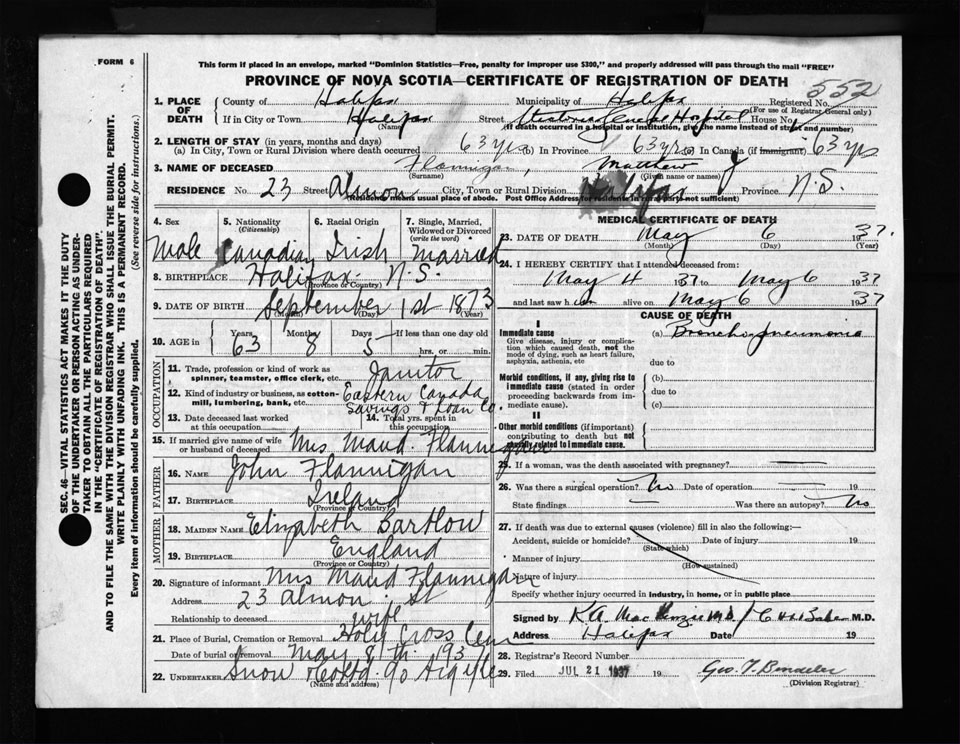 FORM 6
This form if placed in an envelope, marked "Dominion Statistics—Free, penalty for improper use $300," and properly addressed will pass through the mail "FREE"
PROVINCE OF NOVA SCOTIA—CERTIFICATE OF REGISTRATION OF DEATH
552
1. PLACE OF DEATH County of Halifax Municipality of Halifax Registered No.
(For use of Registrar General only)
If in City or Town Halifax Street Victoria General Hospital House No.
(Name) (If death occurred in a hospital or institution, give the name instead of street and number)
2. LENGTH OF STAY (in years, months and days)
(a) In City, Town or Rural Division where death occurred 63 yrs (b) In Province 63 yrs (c) In Canada (if immigrant) 63 yrs
3. NAME OF DECEASED Flannigan, Matthew J
(Surname) (Given name or names)
RESIDENCE No. 23 Street Almon City, Town or Rural Division Halifax Province N.S.
(Residence means usual place of abode. Post Office Address for residents in rural parts not sufficient)
4. Sex 5. Nationality (Citizenship) 6. Racial Origin 7. Single, Married, Widowed or Divorced (write the word)
Male Canadian Irish Married
8. BIRTHPLACE Halifax - N.S.
(Province or Country)
9. DATE OF BIRTH September 1st 1873
(Month) (Day) (Year)
10. AGE in Years Months Days If less than one day old
63 8 5 hrs. or min.
OCCUPATION
11. Trade, profession or kind of work as spinner, teamster, office clerk, etc. Janitor
12. Kind of industry or business, as cotton-mill, lumbering, bank, etc. Eastern Canada Savings & Loan Co.
13. Date deceased last worked at this occupation 14. Total yrs. spent in this occupation
15. If married give name of wife or husband of deceased Mrs. Maud. Flannigan
FATHER
16. NAME John Flannigan
17. BIRTHPLACE Ireland
(Province or Country)
MOTHER
18. MAIDEN NAME Elizabeth Bartlow
19. BIRTHPLACE England
(Province or Country)
20. Signature of informant Mrs Maud Flannigan
Address 23 Almon St
Relationship to deceased wife
21. Place of Burial, Cremation or Removal Holy Cross Cem
Date of burial or removal May 8th 1937
22. UNDERTAKER Snow & Co Ltd 90 Argyle
(Name and address)
MEDICAL CERTIFICATE OF DEATH
23. DATE OF DEATH May 6 1937.
(Month) (Day) (Year)
24. I HEREBY CERTIFY that I attended deceased from:
May 4 1937 to May 6 1937
and last saw him alive on May 6 1937
CAUSE OF DEATH
I
Immediate cause (a) Broncho-pneumonia
Give disease, injury or complication which caused death, not the mode of dying, such as heart failure, asphyxia, asthenia, etc
due to
Morbid conditions, if any, giving rise to immediate cause (stated in order proceeding backwards from immediate cause). (b)
due to
(c)
II
Other morbid conditions (if important) contributing to death but not causally related to immediate cause.
25. If a woman, was the death associated with pregnancy? —
26. Was there a surgical operation? No Date of operation — 19
State findings — Was there an autopsy? No
27. If death was due to external causes (violence) fill in also the following:—
Accident, suicide or homicide? Date of injury 19
(State which)
Manner of injury
(How sustained)
Nature of injury
Specify whether injury occurred in industry, in home, or in public place
Signed by K.A. MacKenzie M.D. / M.D.
Address Halifax Date 19
28. Registrar's Record Number
29. Filed JUL 21 1937 19 Geo. T.
(Division Registrar)
SEC. 46—VITAL STATISTICS ACT MAKES IT THE DUTY
OF THE UNDERTAKER OR PERSON ACTING AS UNDER-
TAKER TO OBTAIN ALL THE PARTICULARS REQUIRED
IN THE "CERTIFICATE OF REGISTRATION OF DEATH"
AND TO FILE THE SAME WITH THE DIVISION REGISTRAR WHO SHALL ISSUE THE BURIAL PERMIT.
WRITE PLAINLY WITH UNFADING INK. THIS IS A PERMANENT RECORD.
Every item of information should be carefully supplied. (See reverse side for instructions.)